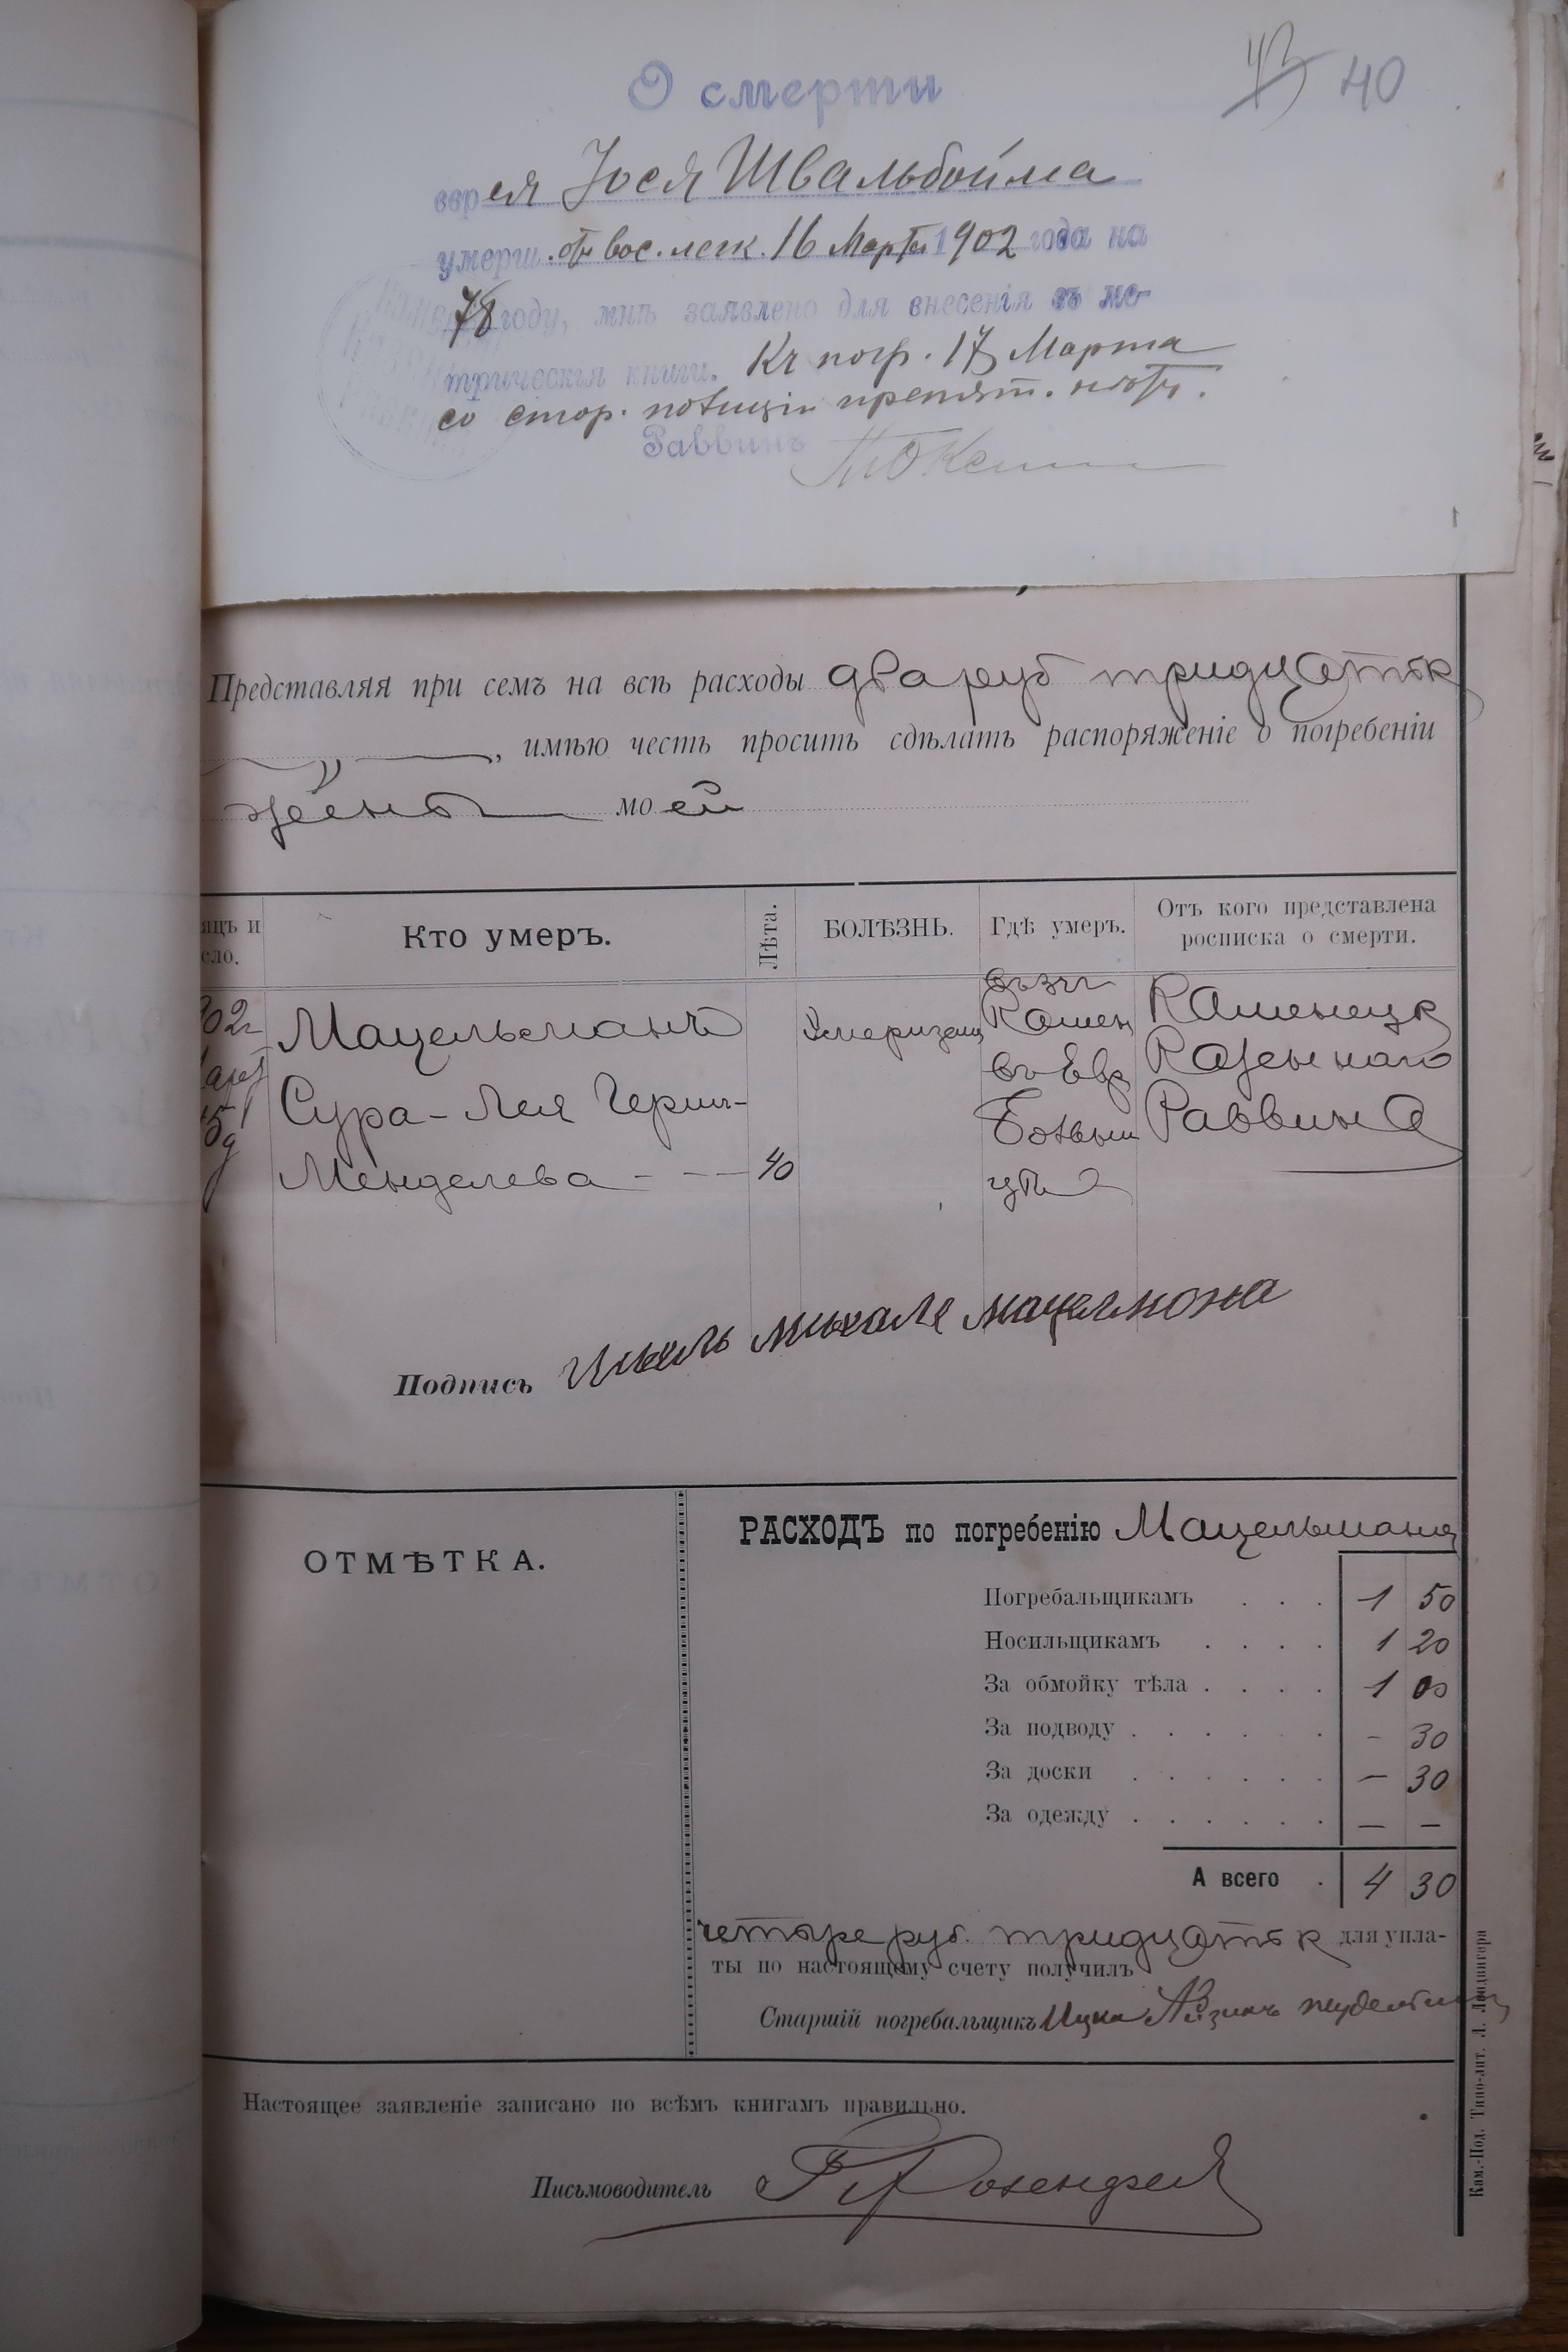 40
О смерти
еврея Іося Швальбойма
умерш. отъ вос. легк. 16 Марта 1902 года на
78 году, мнѣ заявлено для внесенія въ ме-
трическія книги. Къ погр. 17 Марта
со стор. полиціи препят. нѣтъ.
Раввинъ
Представляя при семъ на всѣ расходы два руб тридцать к
, имѣю честь просить сдѣлать распоряженіе о погребеніи
жены моей
яцъ и
сло.
Кто умеръ.
Лѣта.
БОЛѢЗНЬ.
Гдѣ умеръ.
Отъ кого представлена
росписка о смерти.
902г
Март
15
Мацельманъ
Сура-Лея Герш-
Менделева - - - 40
Камен
въ Евр
Больни
цѣ
Каменецк
Казеннаго
Раввина
Подпись Михаль Мацелмона
ОТМѢТКА.
РАСХОДЪ по погребенію Мацельмана
Погребальщикамъ . . . 1 50
Носильщикамъ . . . . 1 20
За обмойку тѣла . . . . 1 00
За подводу . . . . . . - 30
За доски . . . . . . - 30
За одежду . . . . . . - -
А всего . 4 30
четыре руб. тридцать к для упла-
ты по настоящему счету получилъ
Старшій погребальщикъ Ицко Айзикъ
Настоящее заявленіе записано по всѣмъ книгамъ правильно.
Письмоводитель Розенфел
Кам.-Под. Типо-лит. Л. Ландвигера